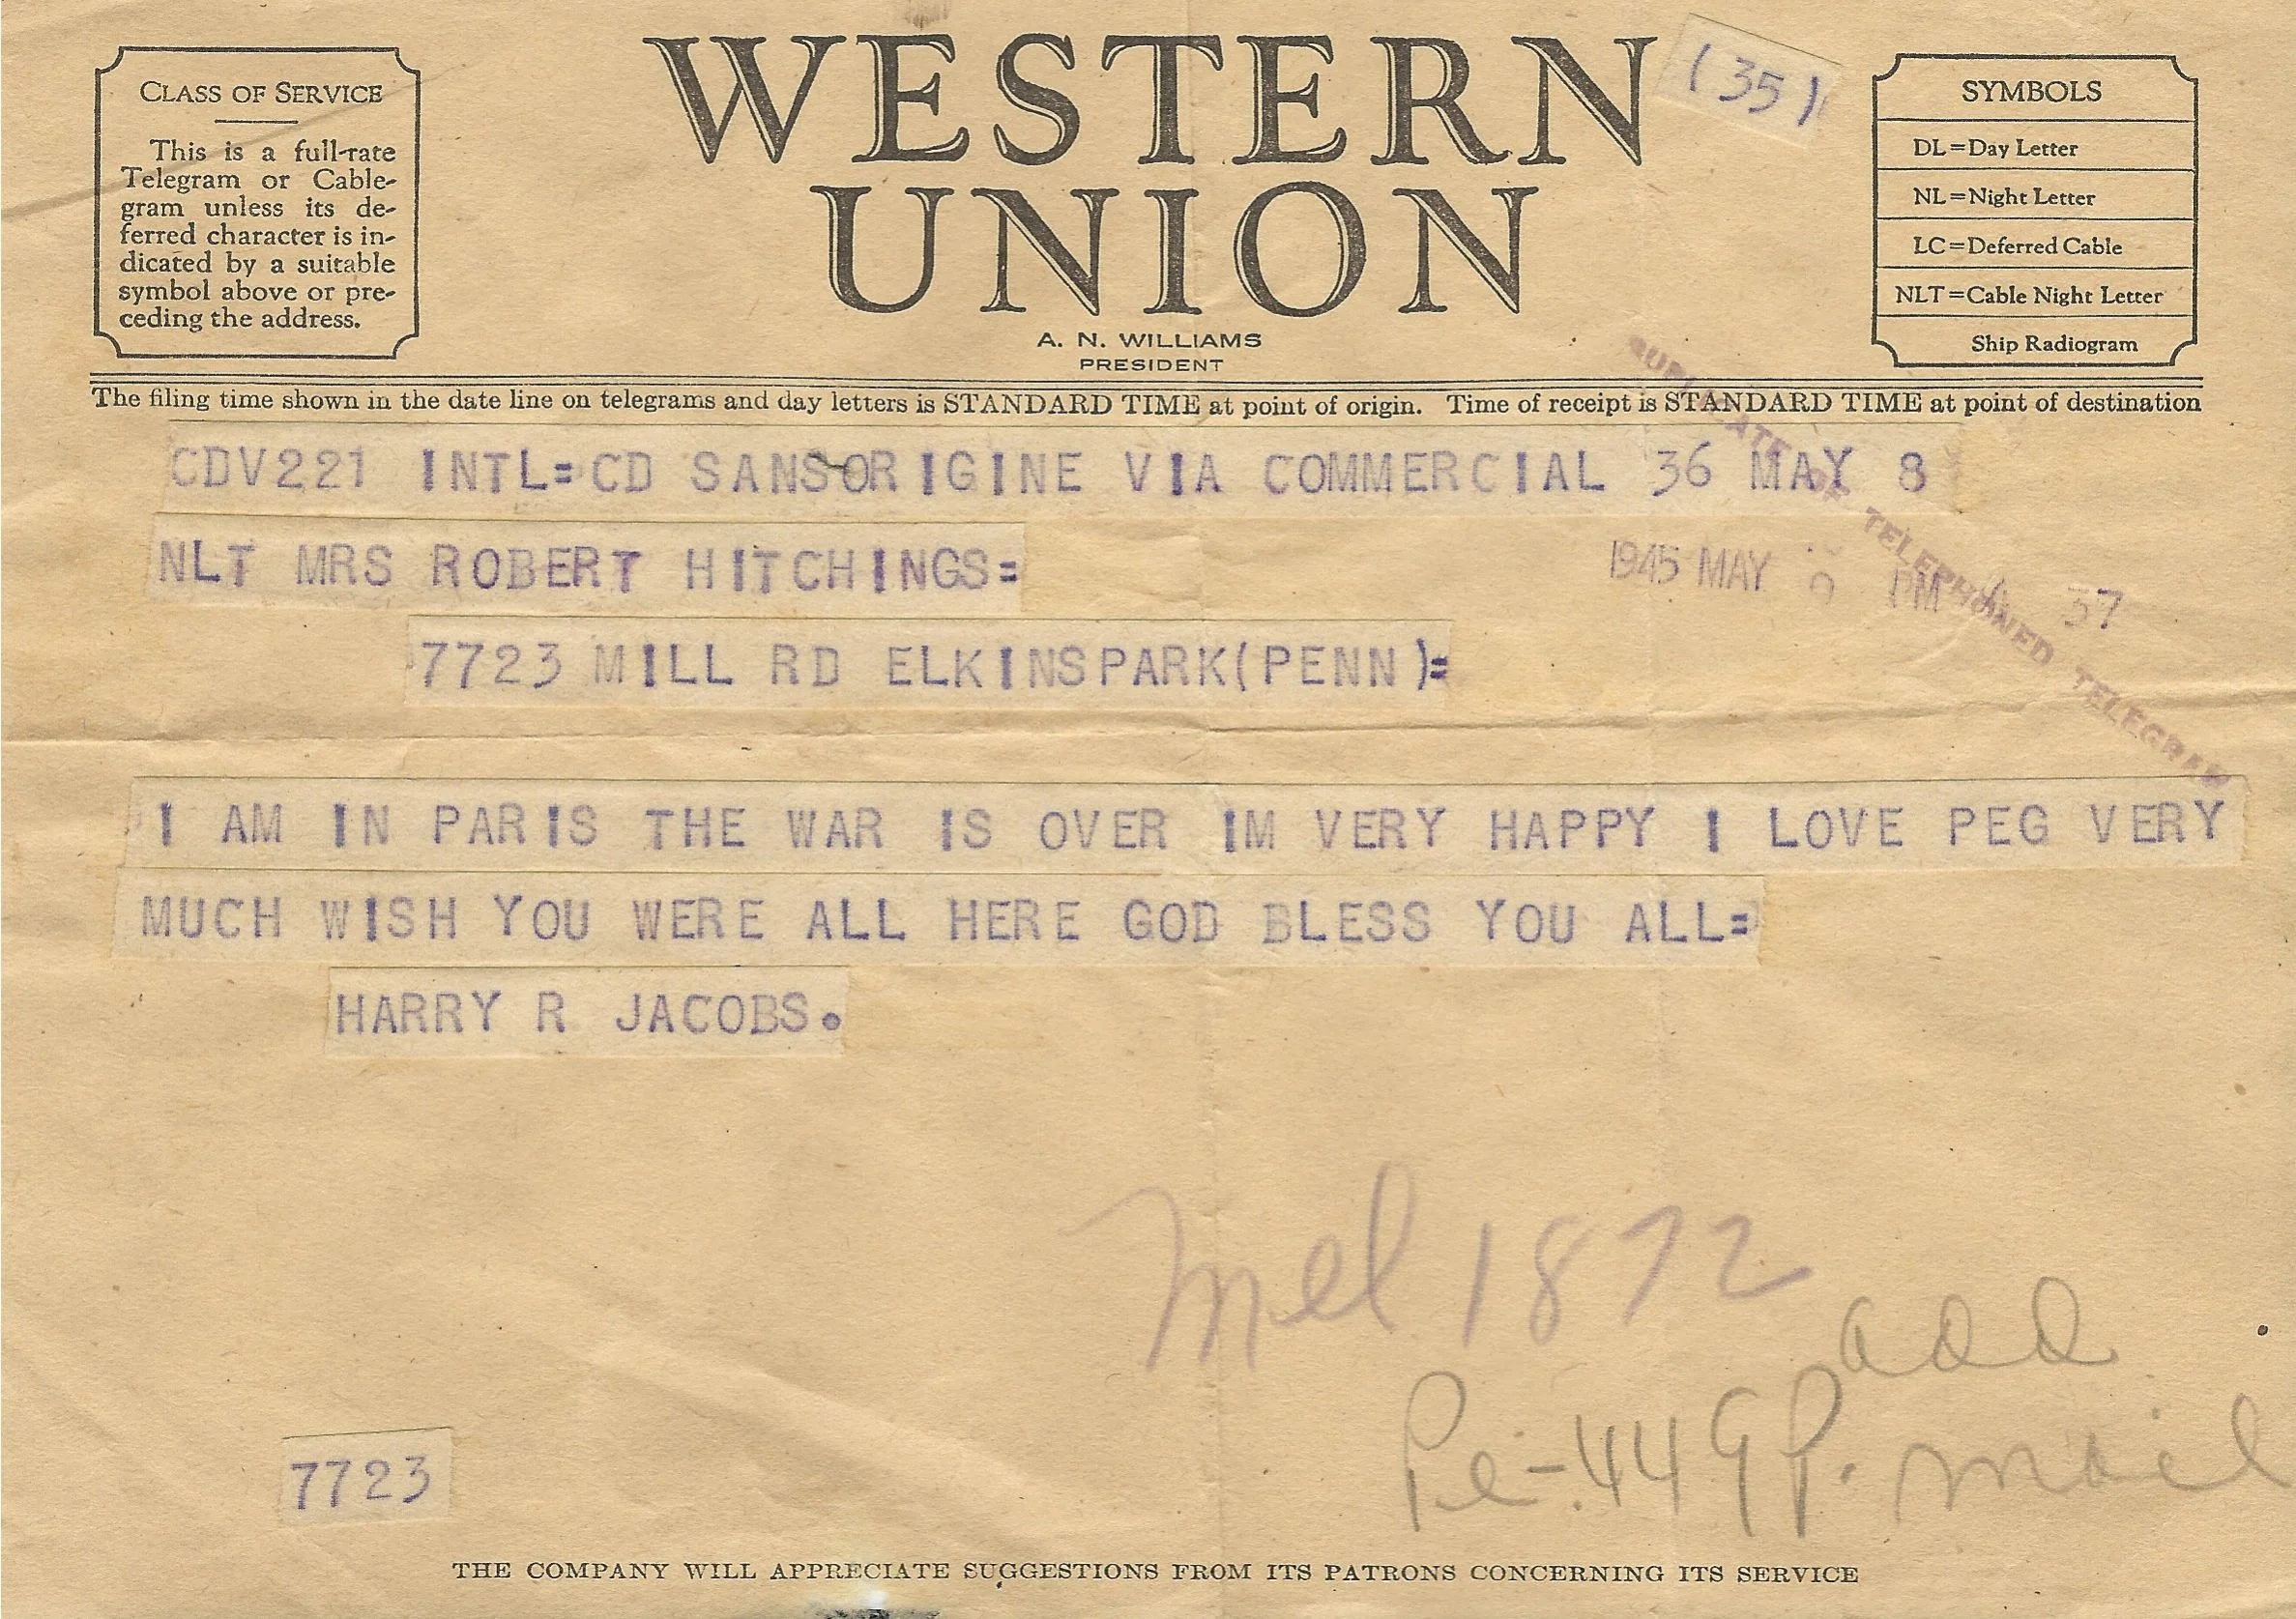 WESTERN
UNION
(35)
CLASS OF SERVICE
This is a full-rate
Telegram or Cable-
gram unless its de-
ferred character is in-
dicated by a suitable
symbol above or pre-
ceding the address.
A. N. WILLIAMS
PRESIDENT
SYMBOLS
DL=Day Letter
NL=Night Letter
LC=Deferred Cable
NLT=Cable Night Letter
Ship Radiogram
The filing time shown in the date line on telegrams and day letters is STANDARD TIME at point of origin. Time of receipt is STANDARD TIME at point of destination
DUPLICATE OF TELEPHONED TELEGRAM
CDV221 INTL=CD SANSORIGINE VIA COMMERCIAL 36 MAY 8
NLT MRS ROBERT HITCHINGS=
1945 MAY PM 57
7723 MILL RD ELKINSPARK(PENN)=
I AM IN PARIS THE WAR IS OVER IM VERY HAPPY I LOVE PEG VERY
MUCH WISH YOU WERE ALL HERE GOD BLESS YOU ALL=
HARRY R JACOBS.
Mel 1872
add
Pe-449P. mail
7723
THE COMPANY WILL APPRECIATE SUGGESTIONS FROM ITS PATRONS CONCERNING ITS SERVICE